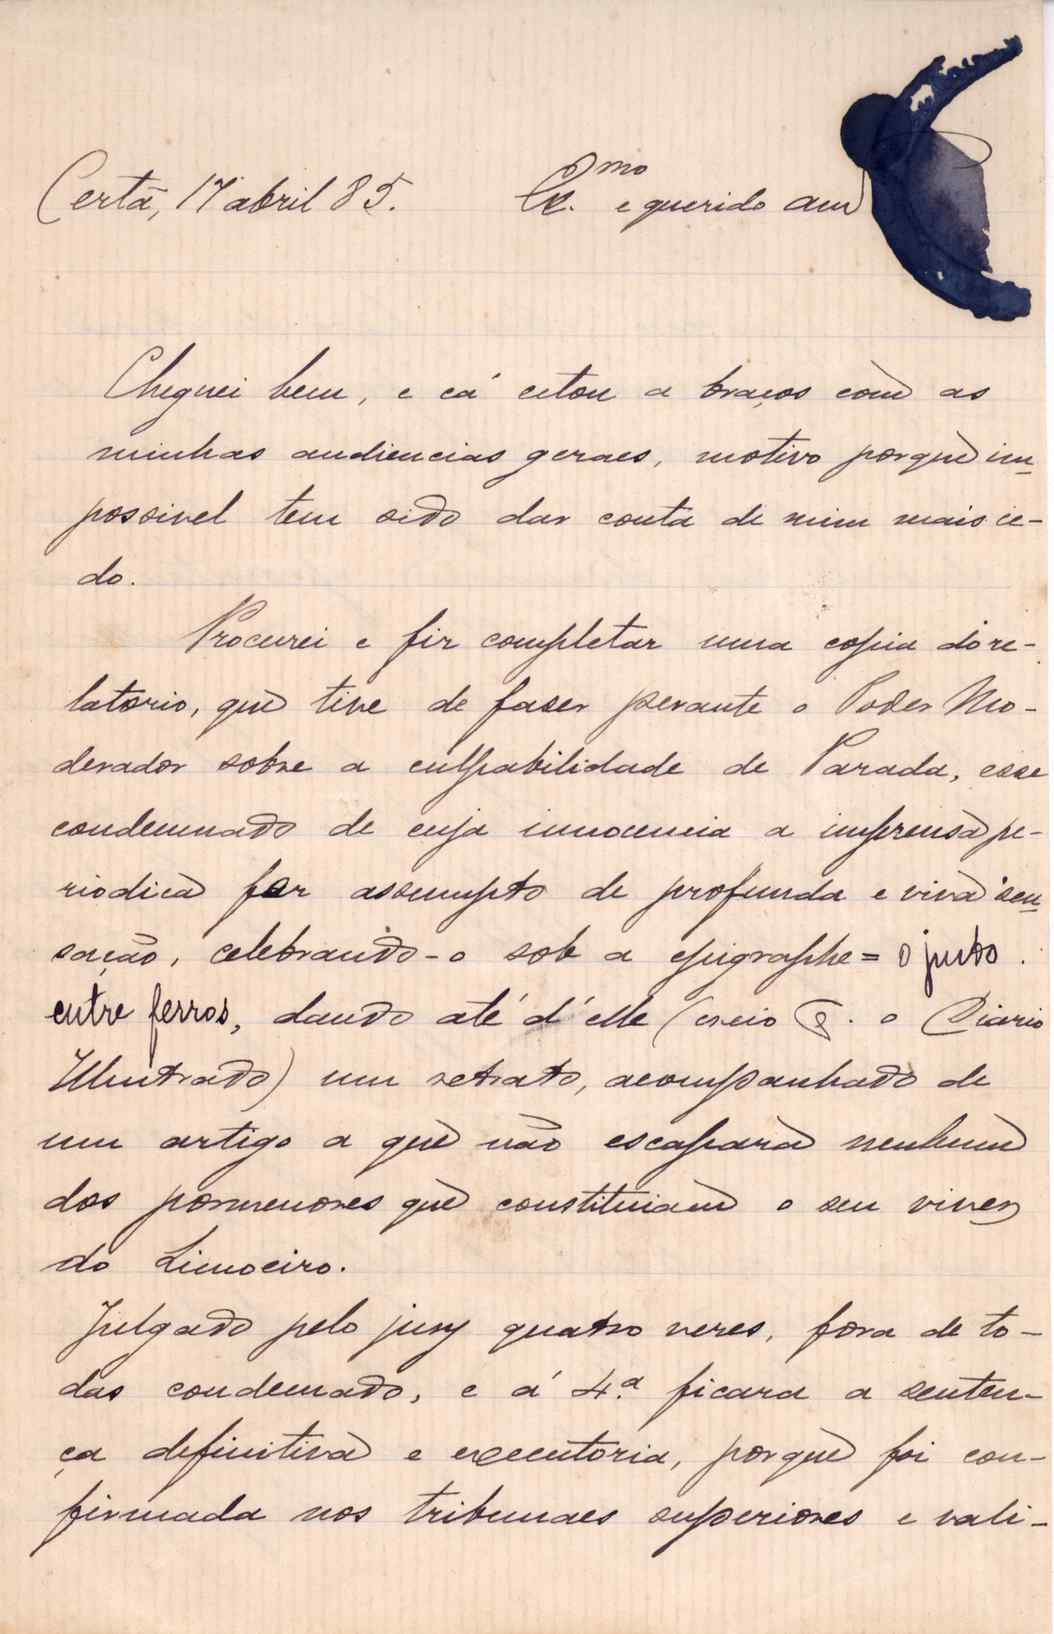 Certã, 17 abril 85. Ex.mo e querido am
Cheguei bem, e cá estou a braços com as
minhas audiencias geraes, motivo porque im-
possivel tem sido dar conta de mim mais ce-
do.
Procurei e fiz completar uma copia do re-
latorio, que tive de faser perante o Poder Mo-
derador sobre a culpabilidade de Parada, esse
condemnado de cuja innocencia a imprensa pe-
riodica fez assumpto de profunda e viva sen-
sação, celebrando-o sob a epigraphe = O justo
entre ferros, dando até d'elle (creio q. o Diario
Illustrado) um retrato, acompanhado de
um artigo a que não escapara nenhum
dos pormenores que constituiam o seu viver
do Limoeiro.
Julgado pelo jury quatro vezes, fora de to-
das condemado, e á 4.ª ficara a senten-
ça definitiva e executoria, porque foi con-
firmada nos tribunaes superiores e vali-